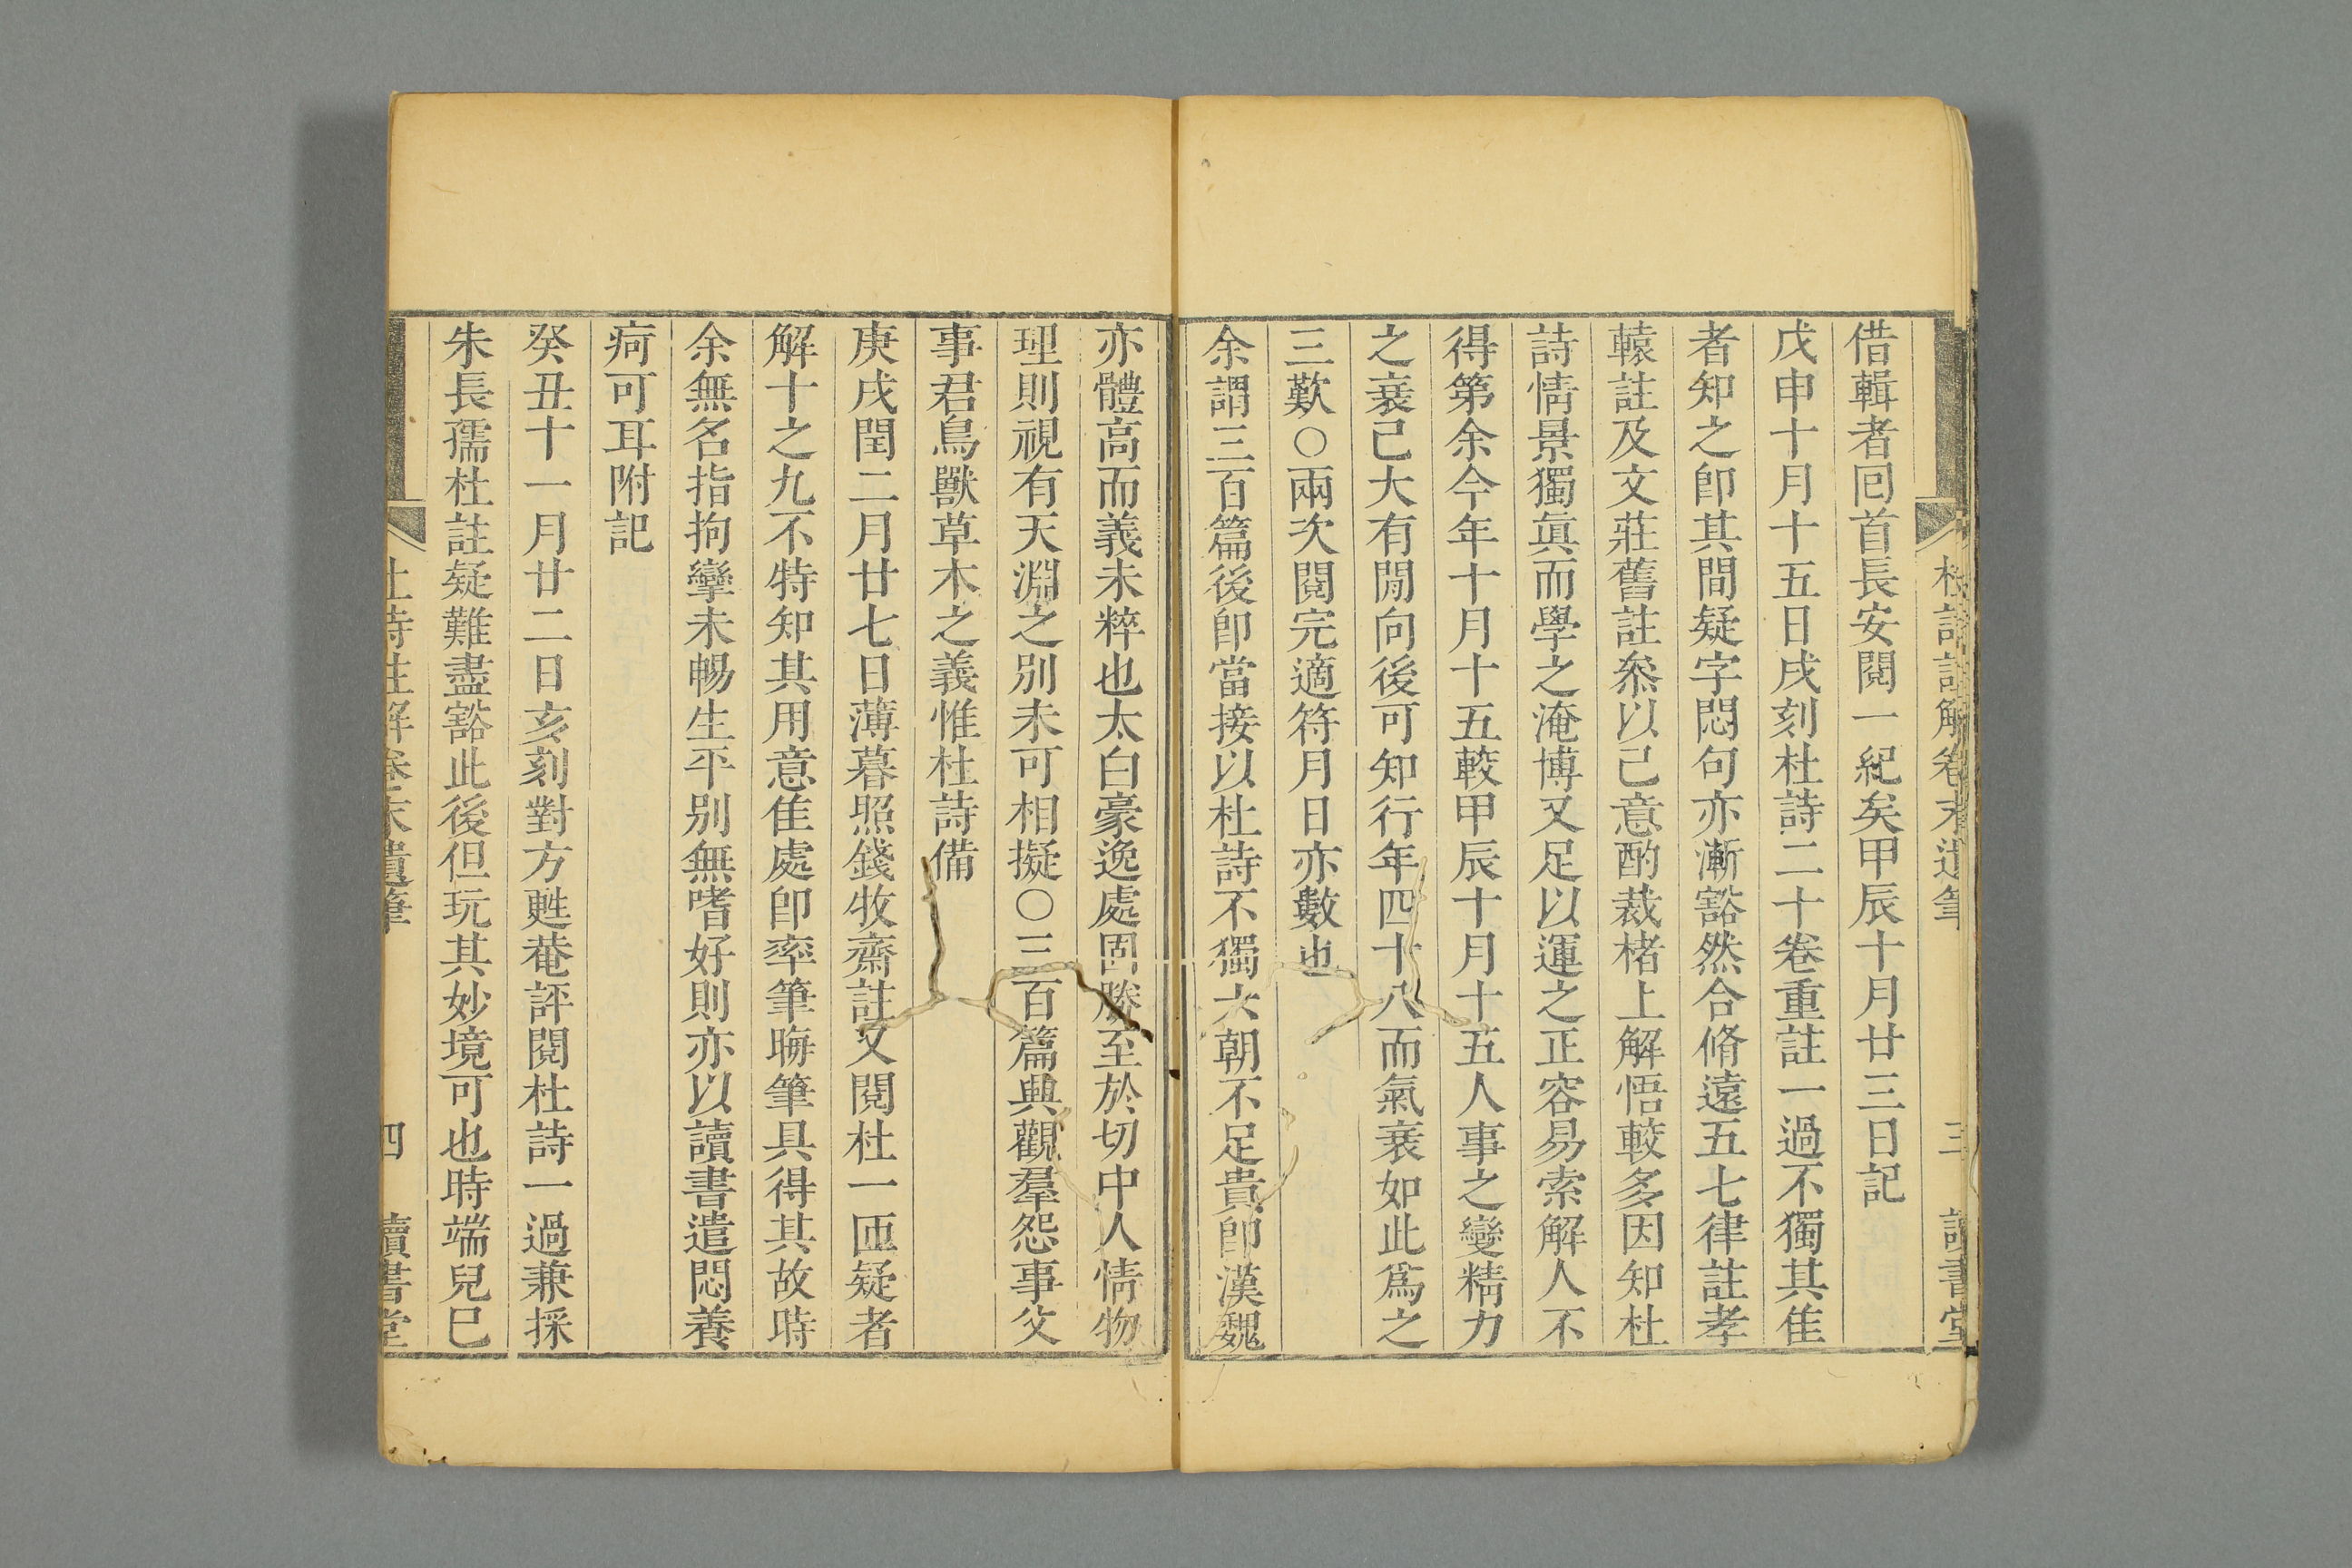 借輯者回首長安閱一紀矣甲辰十月廿三日記
戊申十月十五日戌刻杜詩二十卷重註一過不獨其佳
者知之卽其間疑字悶句亦漸豁然合脩遠五七律註孝
轅註及文莊舊註叅以己意酌裁楮上解悟較多因知杜
詩情景獨眞而學之淹博又足以運之正容易索解人不
得第余今年十月十五較甲辰十月十五人事之變精力
之衰己大有閒向後可知行年四十八而氣衰如此爲之
三歎○兩次閱完適符月日亦數也
余謂三百篇後卽當接以杜詩不獨六朝不足貴卽漢魏
亦體高而義未粹也太白豪逸處固勝至於切中人情物
理則視有天淵之別未可相擬○三百篇興觀羣怨事父
事君鳥獸草木之義惟杜詩備
庚戌閏二月廿七日薄暮照錢牧齋註又閱杜一匝疑者
解十之九不特知其用意佳處卽率筆晦筆具得其故時
余無名指拘攣未暢生平別無嗜好則亦以讀書遣悶養
疴可耳附記
癸丑十一月廿二日亥刻對方甦菴評閱杜詩一過兼採
朱長孺杜註疑難盡豁此後但玩其妙境可也時端兒巳
杜詩註解卷末遺筆 四 讀書堂